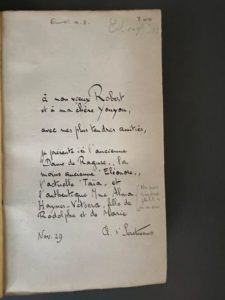 à mon vieux Robert
et à ma chère Youyou,
avec mes plus tendres amitiés,
je présente ici l'ancienne
"Dame de Raguse", la
moins ancienne "Eléonore",
l'actuelle "Taïa", et
l'authentique Mme Alma
Haynes-Vetsera, fille de
Rodolphe et de Marie
Nov. 29